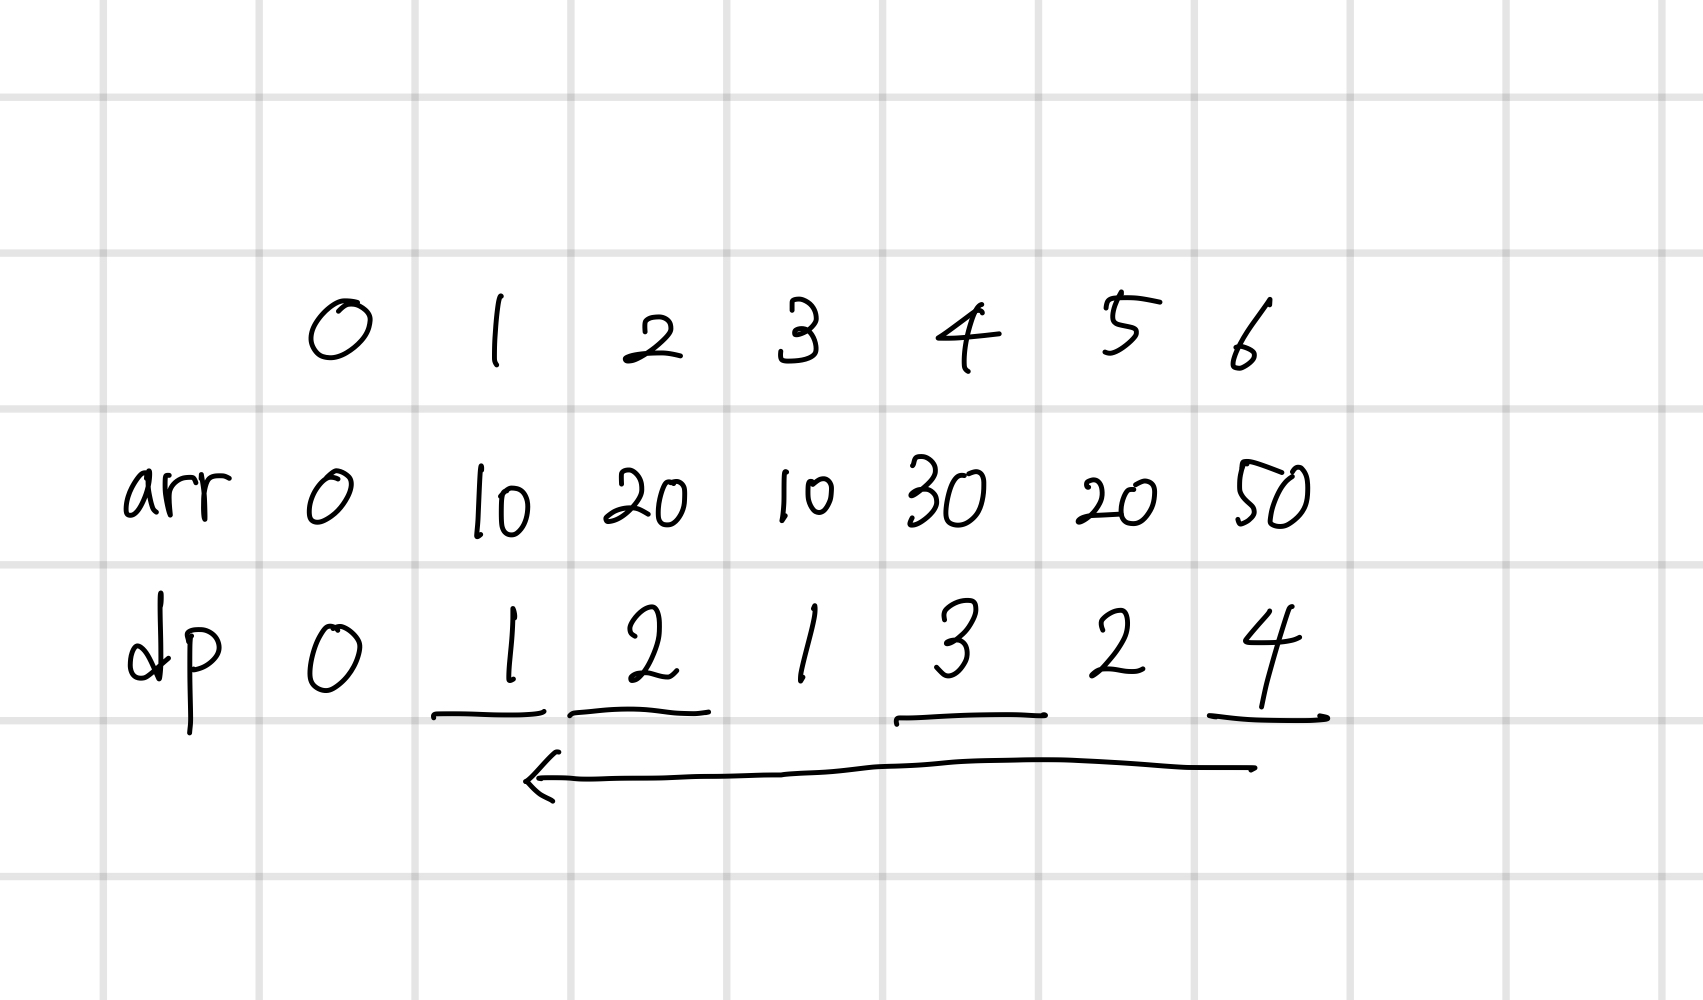 0 1 2 3 4 5 6
arr 0 10 20 10 30 20 50
dp 0 1 2 1 3 2 4